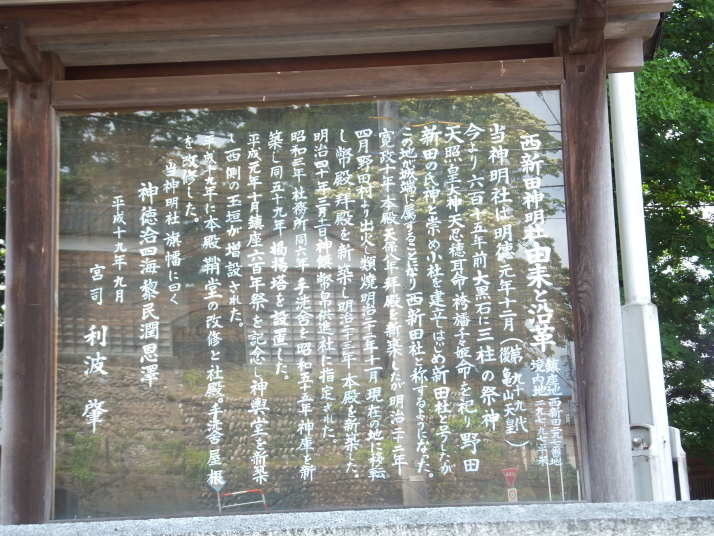 西新田神明社由来と沿革
鎮座地 西新田
境内地
当神明社は明徳元年十二月（第九十九代後亀山天皇）
今より六百十五年前大黒石に三柱の祭神
天照皇大神天忍穂耳命栲幡千々姫命を祀り野田
新田の氏神と崇め小社を建立してはじめ新田社と号したが
この地が城端に属することになり西新田社と称するようになった。
寛政十年本殿天保八年拝殿を新築したが明治二十二年
四月野田村より出火し類焼明治二十二年十一月現在の地に移転
し幣殿拝殿を新築し明治三十三年本殿を新築した。
明治四十年二月二日神饌幣帛供進社に指定された。
昭和三年社務所同六年手洗舎を昭和五十五年神庫を新
築し同五十九年掲揚塔を設置した。
平成元年十月鎮座六百年祭を記念し神輿堂を新築
し西側の玉垣が増設された。
平成十七年に本殿鞘堂の改修と社殿。手洗舎屋根
を改修した。
当神明社旗幡に曰く
神徳治四海黎民潤恩澤
平成十九年九月
宮司 利波肇